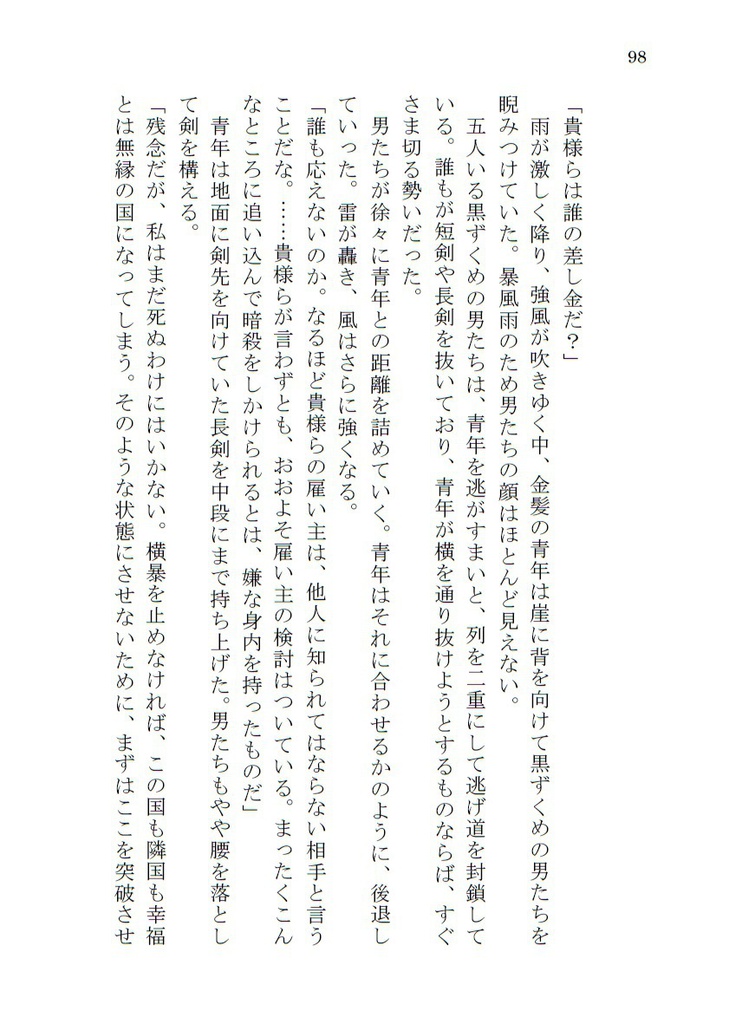 98
「貴様らは誰の差し金だ？」
　雨が激しく降り、強風が吹きゆく中、金髪の青年は崖に背を向けて黒ずくめの男たちを
睨みつけていた。暴風雨のため男たちの顔はほとんど見えない。
　五人いる黒ずくめの男たちは、青年を逃がすまいと、列を二重にして逃げ道を封鎖して
いる。誰もが短剣や長剣を抜いており、青年が横を通り抜けようとするものならば、すぐ
さま切る勢いだった。
　男たちが徐々に青年との距離を詰めていく。青年はそれに合わせるかのように、後退し
ていった。雷が轟き、風はさらに強くなる。
「誰も応えないのか。なるほど貴様らの雇い主は、他人に知られてはならない相手と言う
ことだな。……貴様らが言わずとも、おおよそ雇い主の検討はついている。まったくこん
なところに追い込んで暗殺をしかけられるとは、嫌な身内を持ったものだ」
　青年は地面に剣先を向けていた長剣を中段にまで持ち上げた。男たちもやや腰を落とし
て剣を構える。
「残念だが、私はまだ死ぬわけにはいかない。横暴を止めなければ、この国も隣国も幸福
とは無縁の国になってしまう。そのような状態にさせないために、まずはここを突破させ